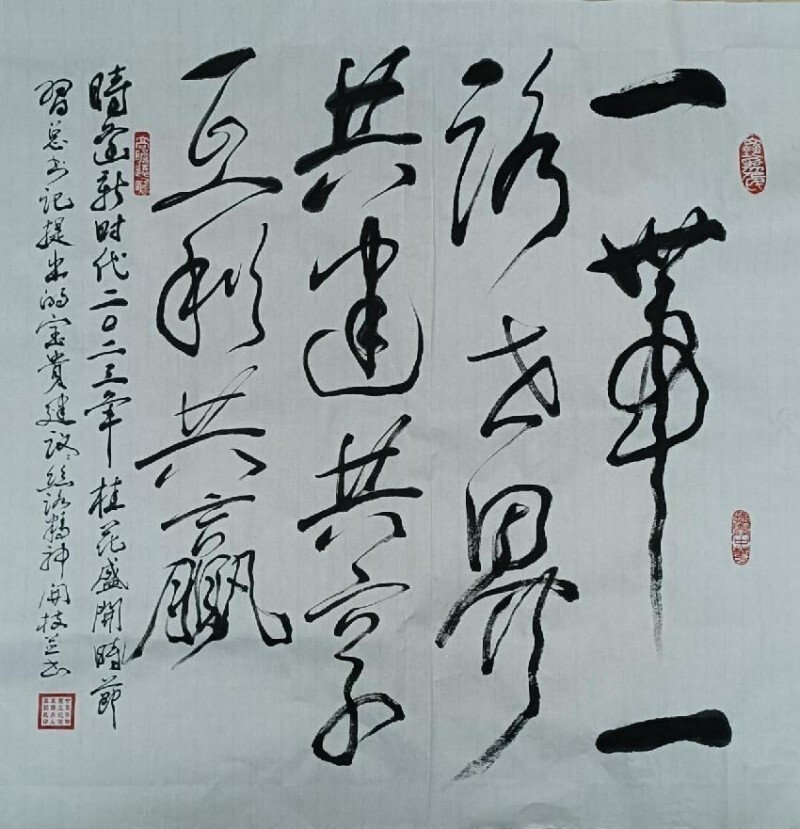 一帶一
路世界
共建共享
互利共贏
時逢新时代二〇二三年桂花盛開時節
習总书记提出的宝贵建议絲路精神